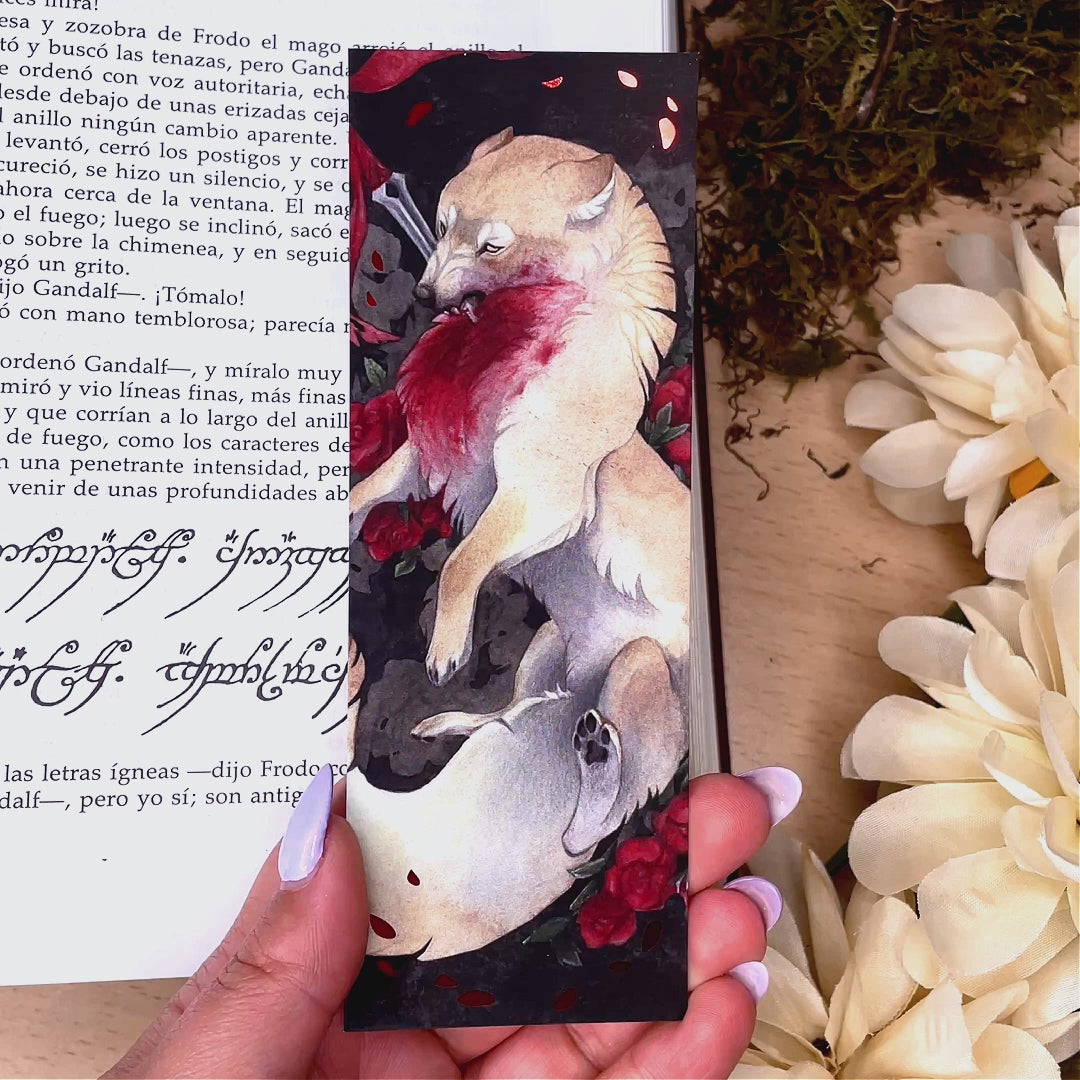 mira!
esa y zozobra de Frodo el mago arrojó el anillo al
tó y buscó las tenazas, pero Ganda
e ordenó con voz autoritaria, echa
desde debajo de unas erizadas ceja
l anillo ningún cambio aparente.
levantó, cerró los postigos y corr
cureció, se hizo un silencio, y se o
ahora cerca de la ventana. El mag
o el fuego; luego se inclinó, sacó e
o sobre la chimenea, y en seguid
ogó un grito.
ijo Gandalf—. ¡Tómalo!
ó con mano temblorosa; parecía
ordenó Gandalf—, y míralo muy
miró y vio líneas finas, más finas
y que corrían a lo largo del anill
de fuego, como los caracteres de
n una penetrante intensidad, per
venir de unas profundidades ab
las letras ígneas —dijo Frodo co
dalf—, pero yo sí; son antig